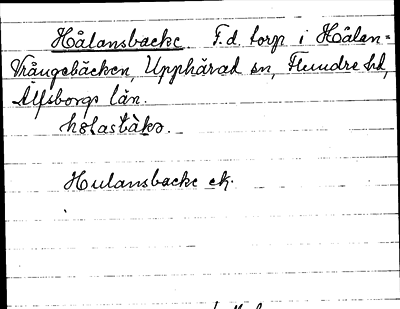 Hålansbacke. F.d. torp i Hålan=
Vrångebäcken, Upphärad sn, Flundre hd,
Älfsborgs län.
hɷlasbàkə.
Hulansbacke ek.